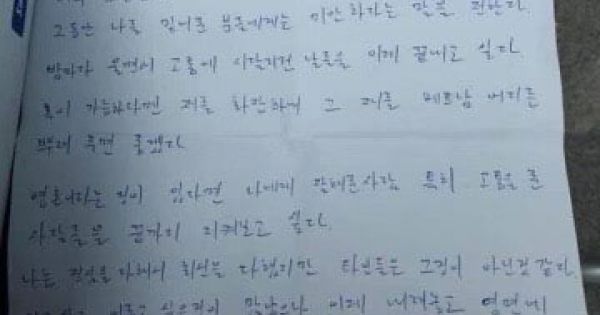 그동안 나를 믿어준 분들에게는 미안하다는 말을 전한다.
밤마다 울면서 고통에 시달리던 날들을 이제 끝내고 싶다.
혹이 가능하다면 저를 화장하여 그 재를 메트남
뿌려 주면 좋겠다
영혼이라는 것이 있다면 나에게 사람 특히 고통을 준
사람들을 끝까지 지켜보고 싶다.
나는 다해서 최선을 다했지만 타인들은 그것이 아닌것 같다.
싶은것이 많았으나 이제 내려놓고